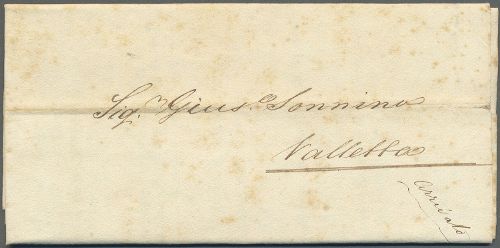 Sig.r Gius.e Sonnino
Valletta
arrivato